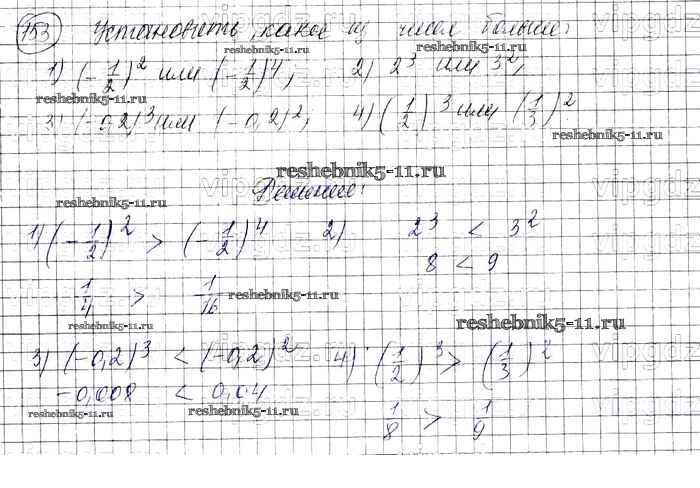 153 Установить, какое из чисел больше:
reshebnik5-11.ru
1) (-1/2)^2 или (-1/2)^4; 2) 2^3 или 3^2;
reshebnik5-11.ru
3) (-0,2)^3 или (-0,2)^2, 4) (1/2)^3 или (1/3)^2
reshebnik5-11.ru
reshebnik5-11.ru
Решение:
reshebnik5-11.ru
1) (-1/2)^2 > (-1/2)^4 2) 2^3 < 3^2
8 < 9
1/4 > 1/16
reshebnik5-11.ru
reshebnik5-11.ru
reshebnik5-11.ru
3) (-0,2)^3 < (-0,2)^2 4) (1/2)^3 > (1/3)^2
-0,008 < 0,04
reshebnik5-11.ru
reshebnik5-11.ru
1/8 > 1/9